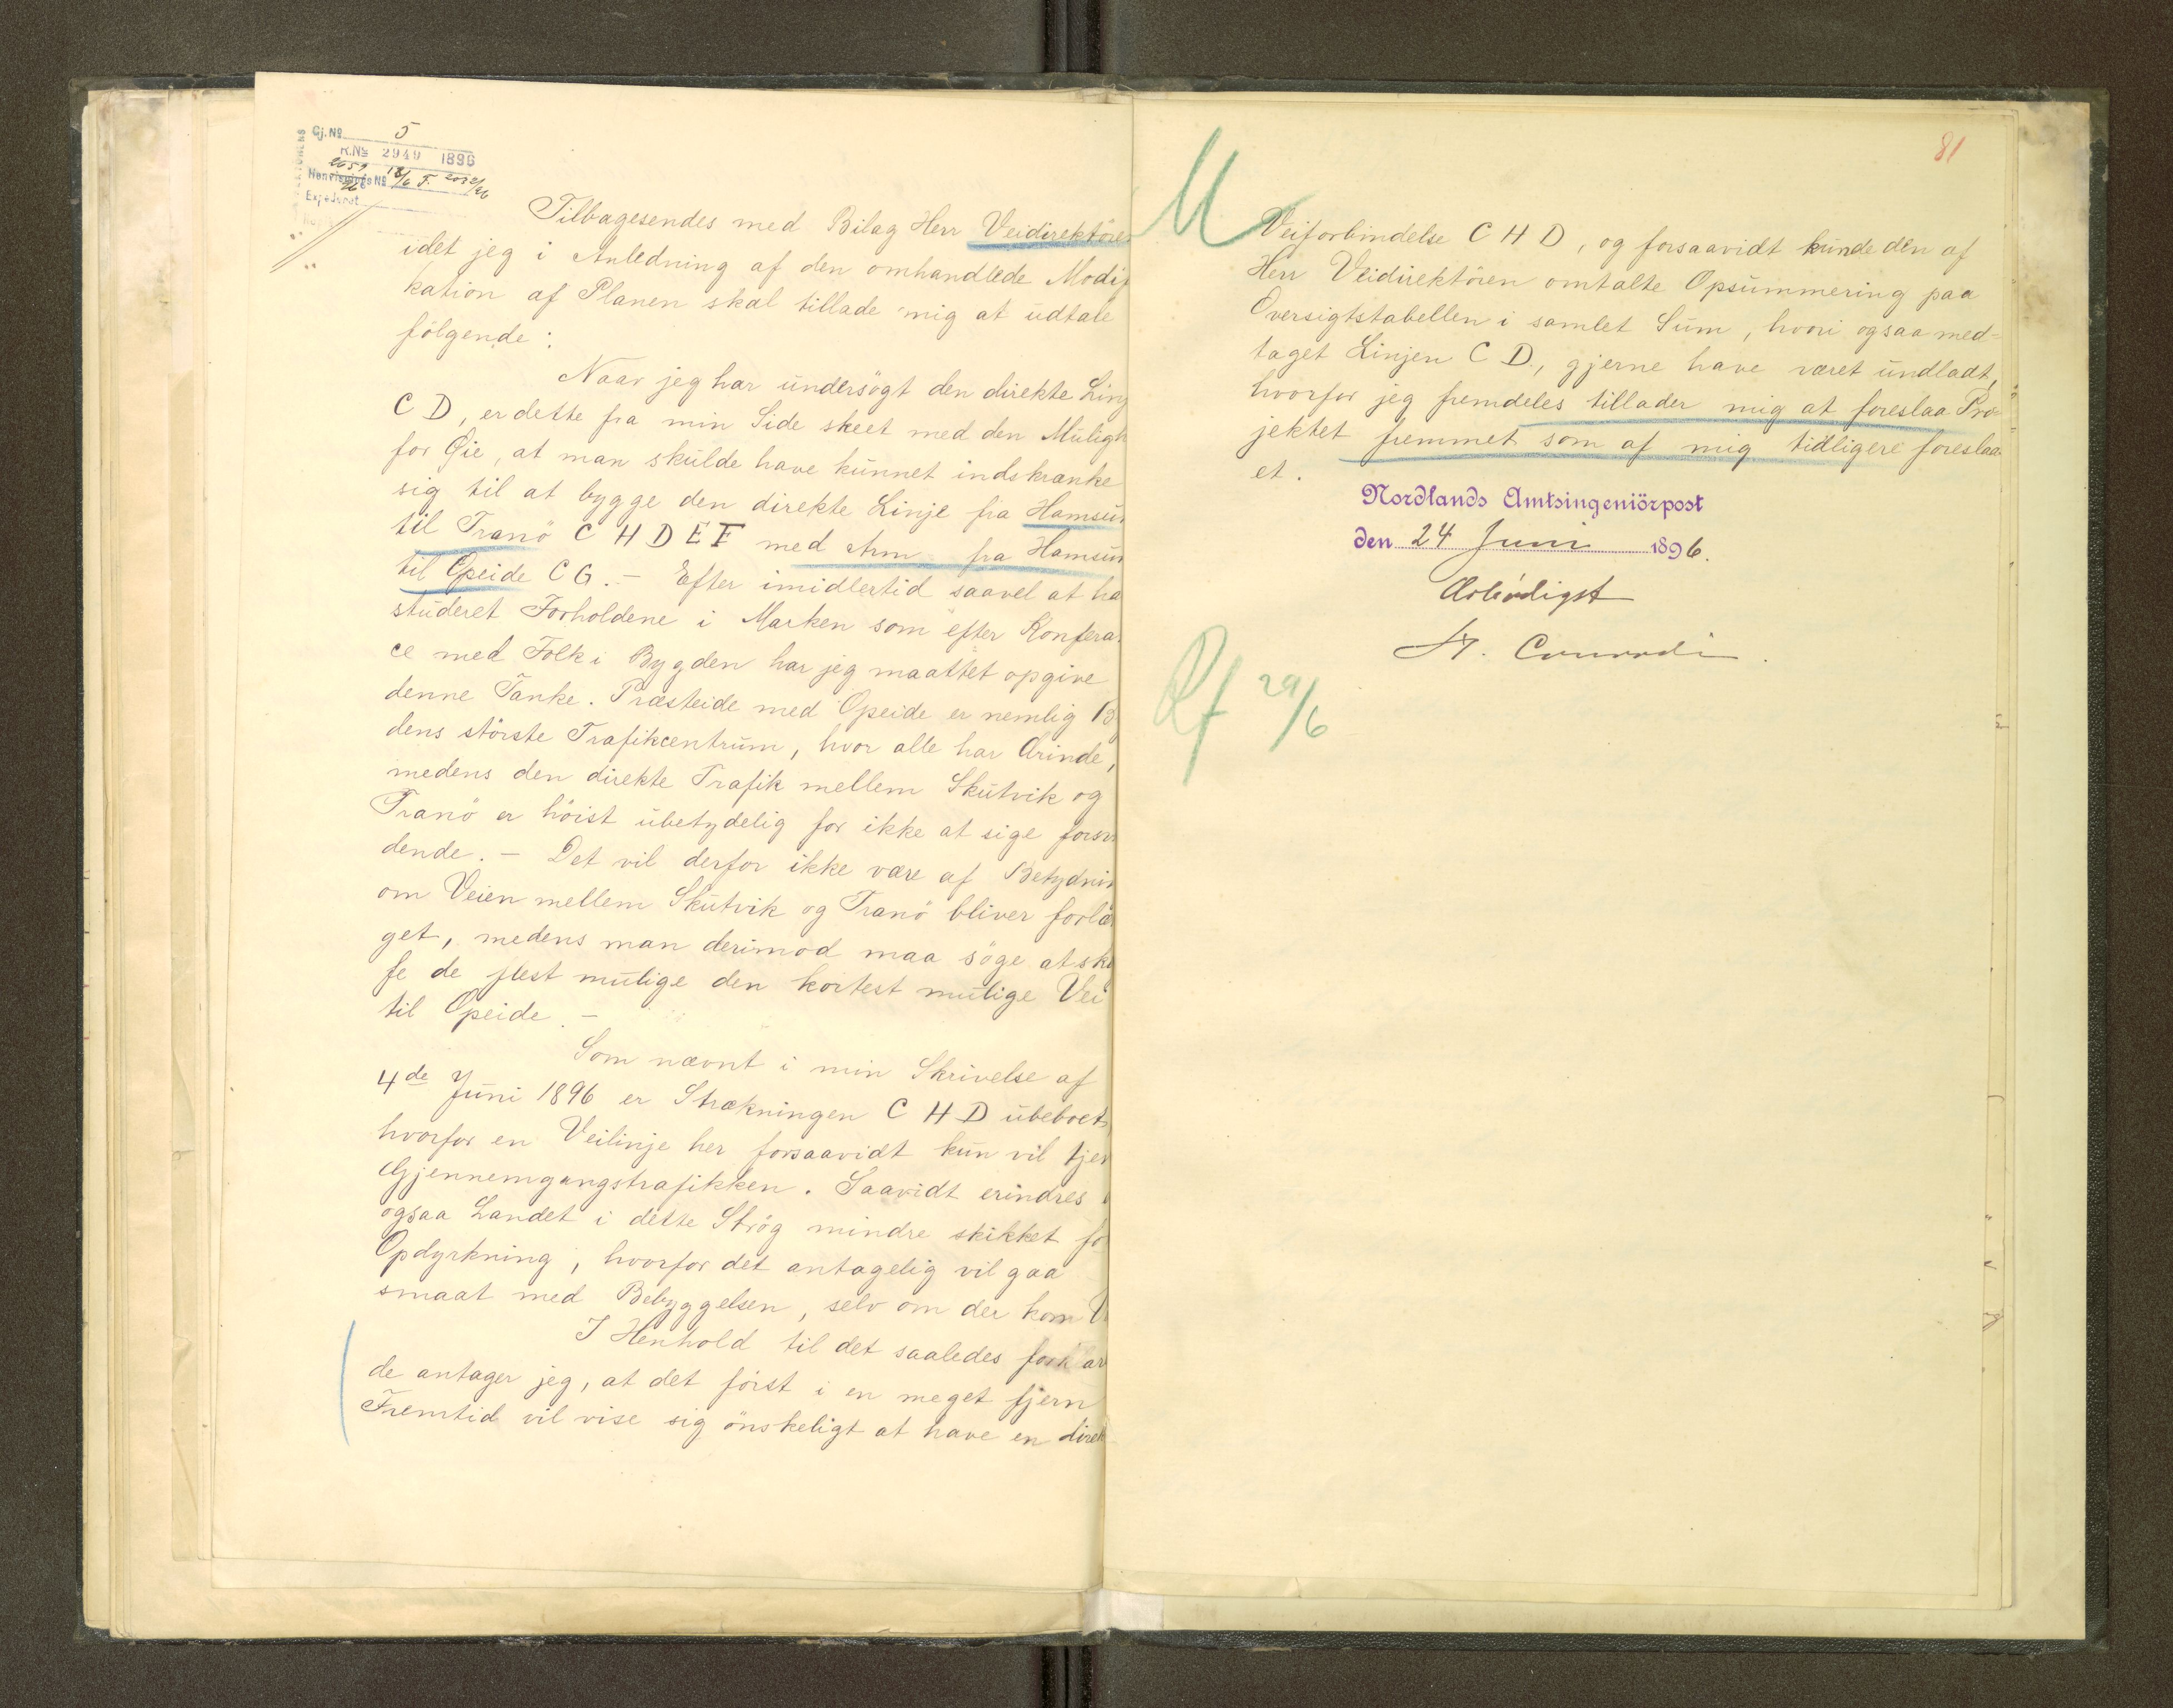 Gj. No 5
R.No 2949 1896
Henvisnings No 18/6 F.
Expederet
Tilbagesendes med Bilag Herr Veidirektöre
idet jeg i Anledning af den omhandlede Modif
kation af Planen skal tillade mig at udtale
fölgende:
Naar jeg har undersögt den direkte Linj
C D, er dette fra min Side skeet med den Muligh
for Øie, at man skulde have kunnet indskrænke
sig til at bygge den direkte Linje fra Hamsun
til Tranö C H D E F med Arm fra Hamsun
til Opeide C G. – Efter imidlertid saavel at ha
studeret Forholdene i Marken som efter Konfera
ce med Folk i Bygden har jeg maattet opgive
denne Tanke. Præsteide med Opeide er nemlig B
dens störste Trafikcentrum, hvor alle har Ærinde,
medens den direkte Trafik mellem Skutvik og
Tranö er höist ubetydelig for ikke at sige forsv
dende. – Det vil derfor ikke være af Betydnin
om Veien mellem Skutvik og Tranö bliver forlæ
get, medens man derimod maa söge at ska
fe de flest mulige den kortest mulige Vei
til Opeide. –
Som nævnt i min Skrivelse af
4de Juni 1896 er Strækningen C H D ubeboet,
hvorfor en Veilinje her forsaavidt kun vil tjen
Gjennemgangstrafikken. Saavidt erindres
ogsaa Landet i dette Strög mindre skikket fo
Opdyrkning, hvorfor det antagelig vil gaa
smaat med Bebyggelsen, selv om der kom V
I Henhold til det saaledes forklar
de antager jeg, at det först i en meget fjern
Fremtid vil vise sig önskeligt at have en direk
81
M
Veiforbindelse C H D, og forsaavidt kunde den af
Herr Veidirektören omtalte Opsummering paa
Oversigtstabellen i samlet Sum, hvori ogsaa med=
taget Linjen C D., gjerne have været undladt,
hvorfor jeg fremdeles tillader mig at foreslaa Pro=
jektet fremmet som af mig tidligere foreslaa
et.
Nordlands Amtsingeniörpost
den 24 Juni 1896.
Ærbödigst
H. Conradi.
Rf 29/6